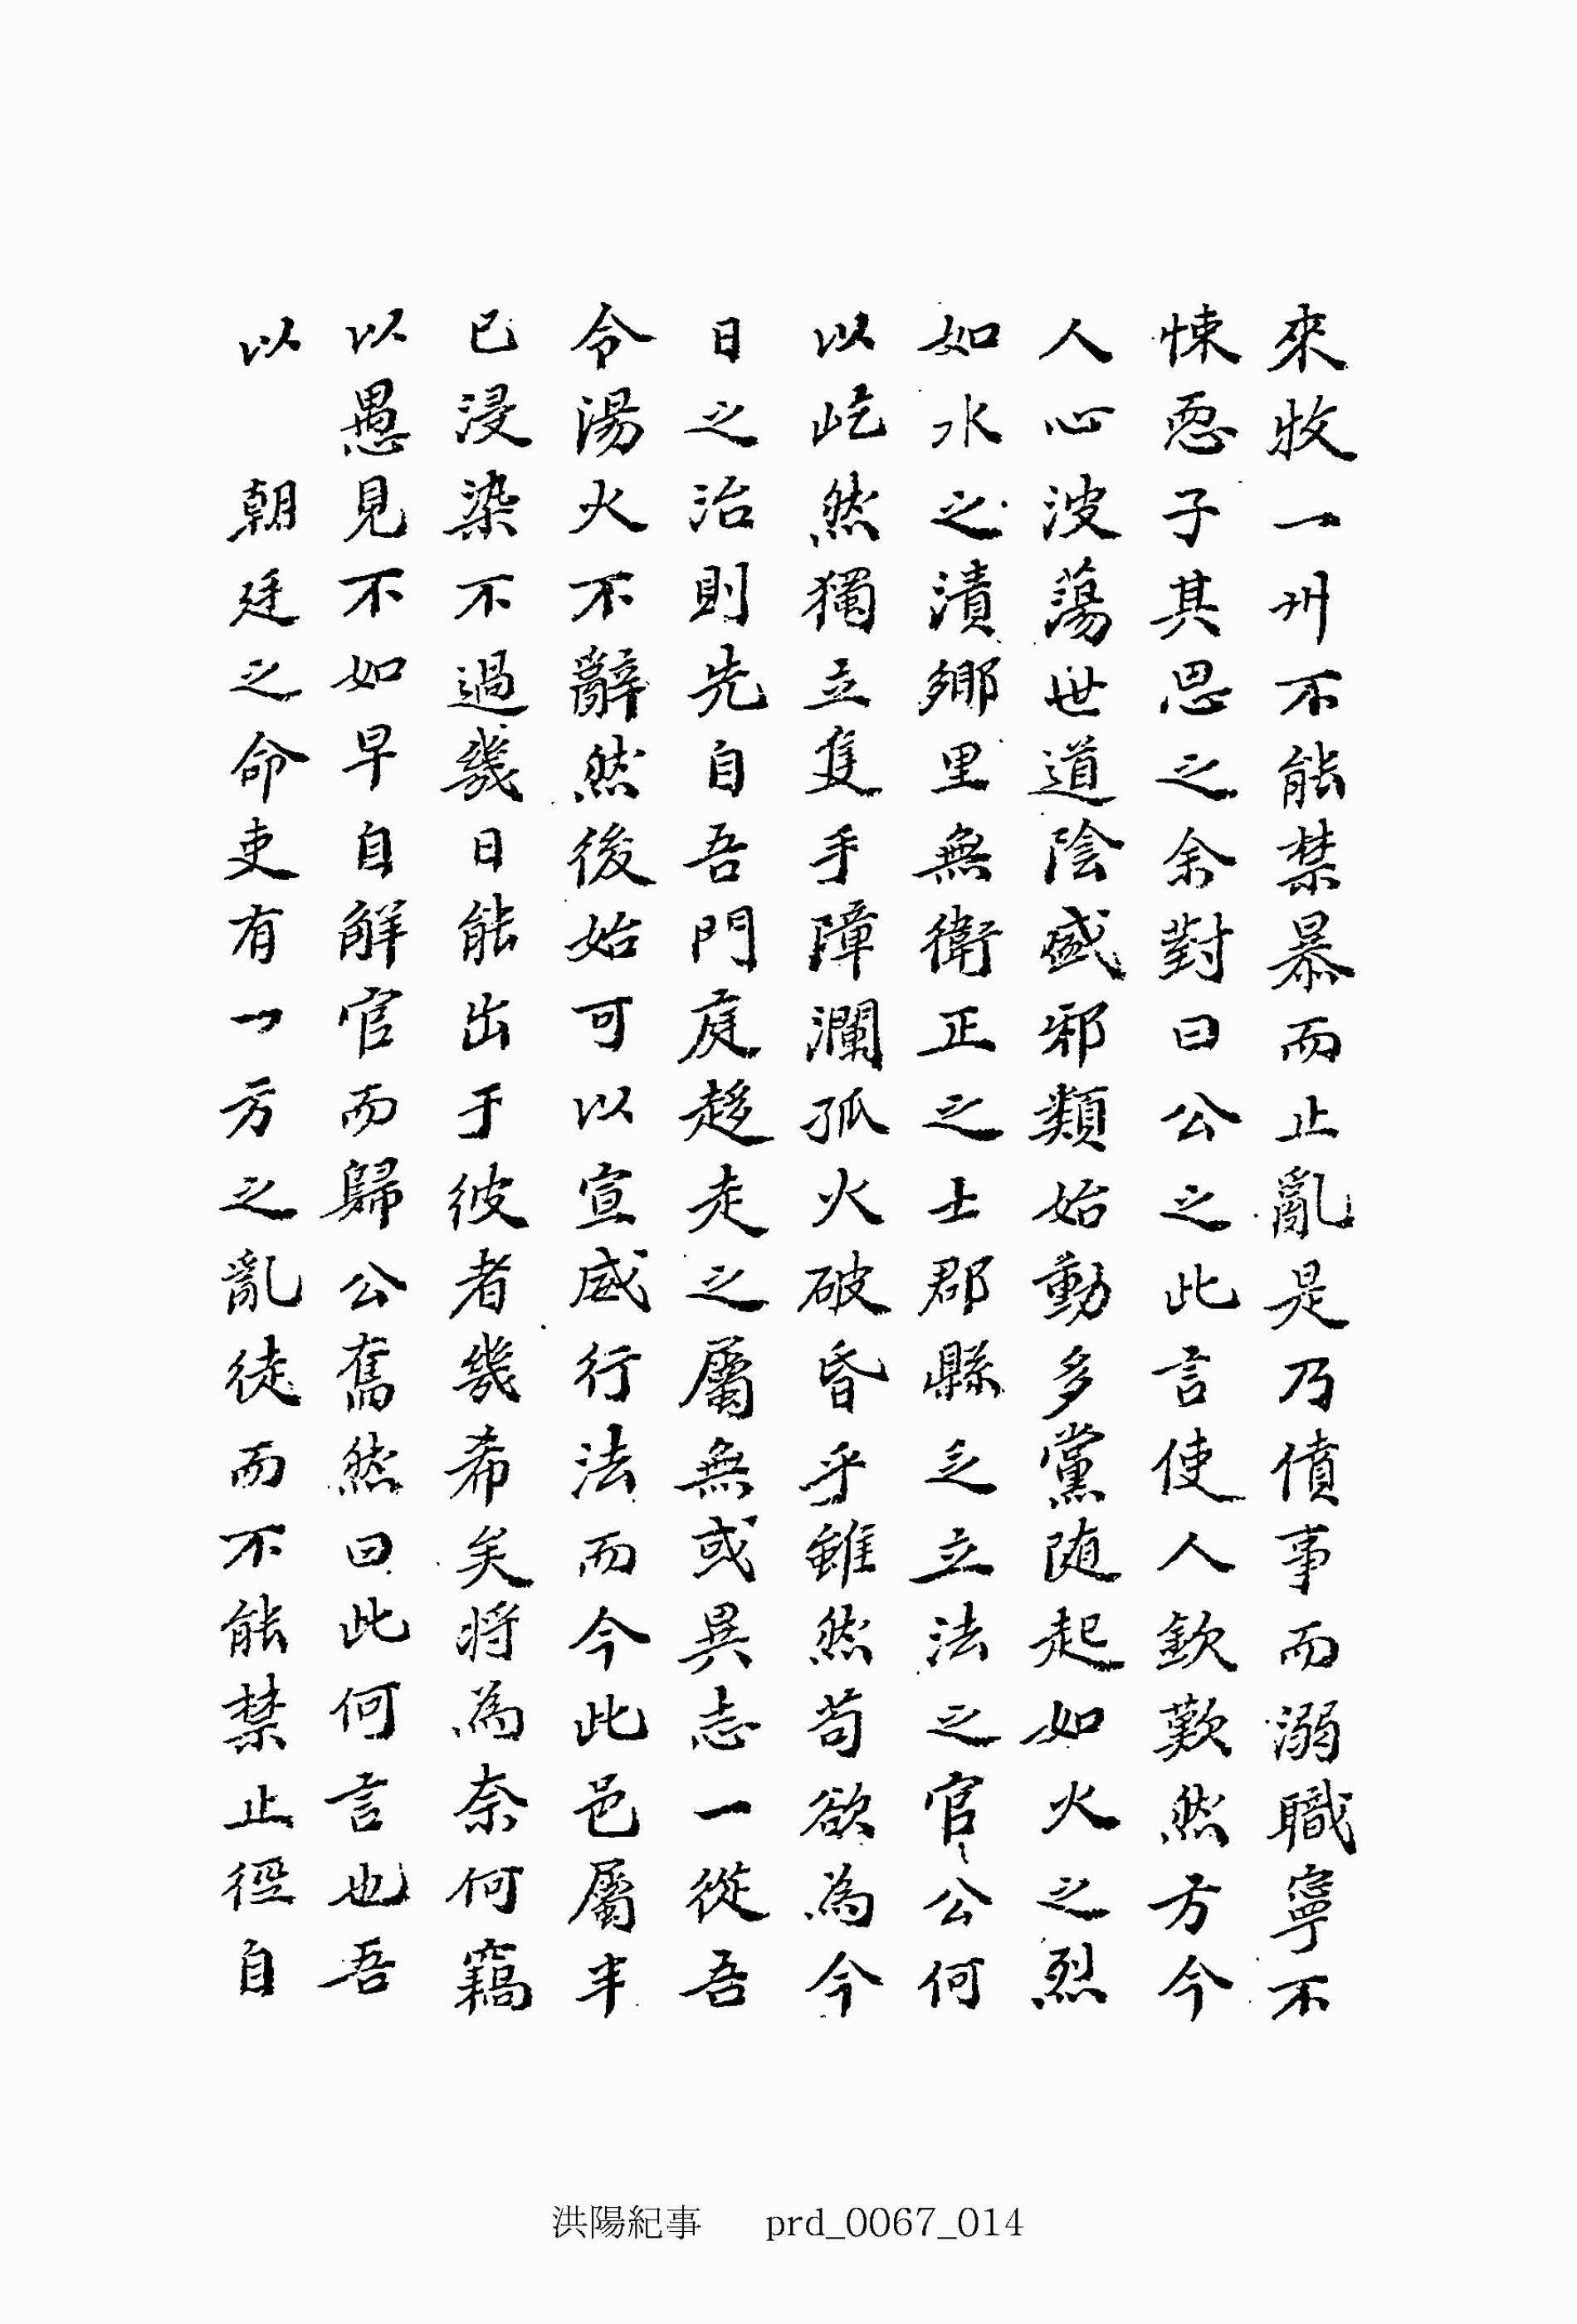 來牧一州不能禁暴而止亂是乃僨事而溺職寧不
悚恧子其思之余對曰公之此言使人欽歎然方今
人心波蕩世道陰盛邪類始動多黨随起如火之烈
如水之漬鄉里無衛正之士郡縣乏立法之官公何
以屹然獨立隻手障瀾孤火破昏乎雖然苟欲為今
日之治則先自吾門庭趍走之屬無或異志一從吾
令湯火不辭然後始可以宣威行法而今此邑屬半
已浸染不過幾日能出于彼者幾希矣将為奈何竊
以愚見不如早自解官而歸公奮然曰此何言也吾
以 朝廷之命吏有一方之亂徒而不能禁止徑自
洪陽紀事 prd_0067_014